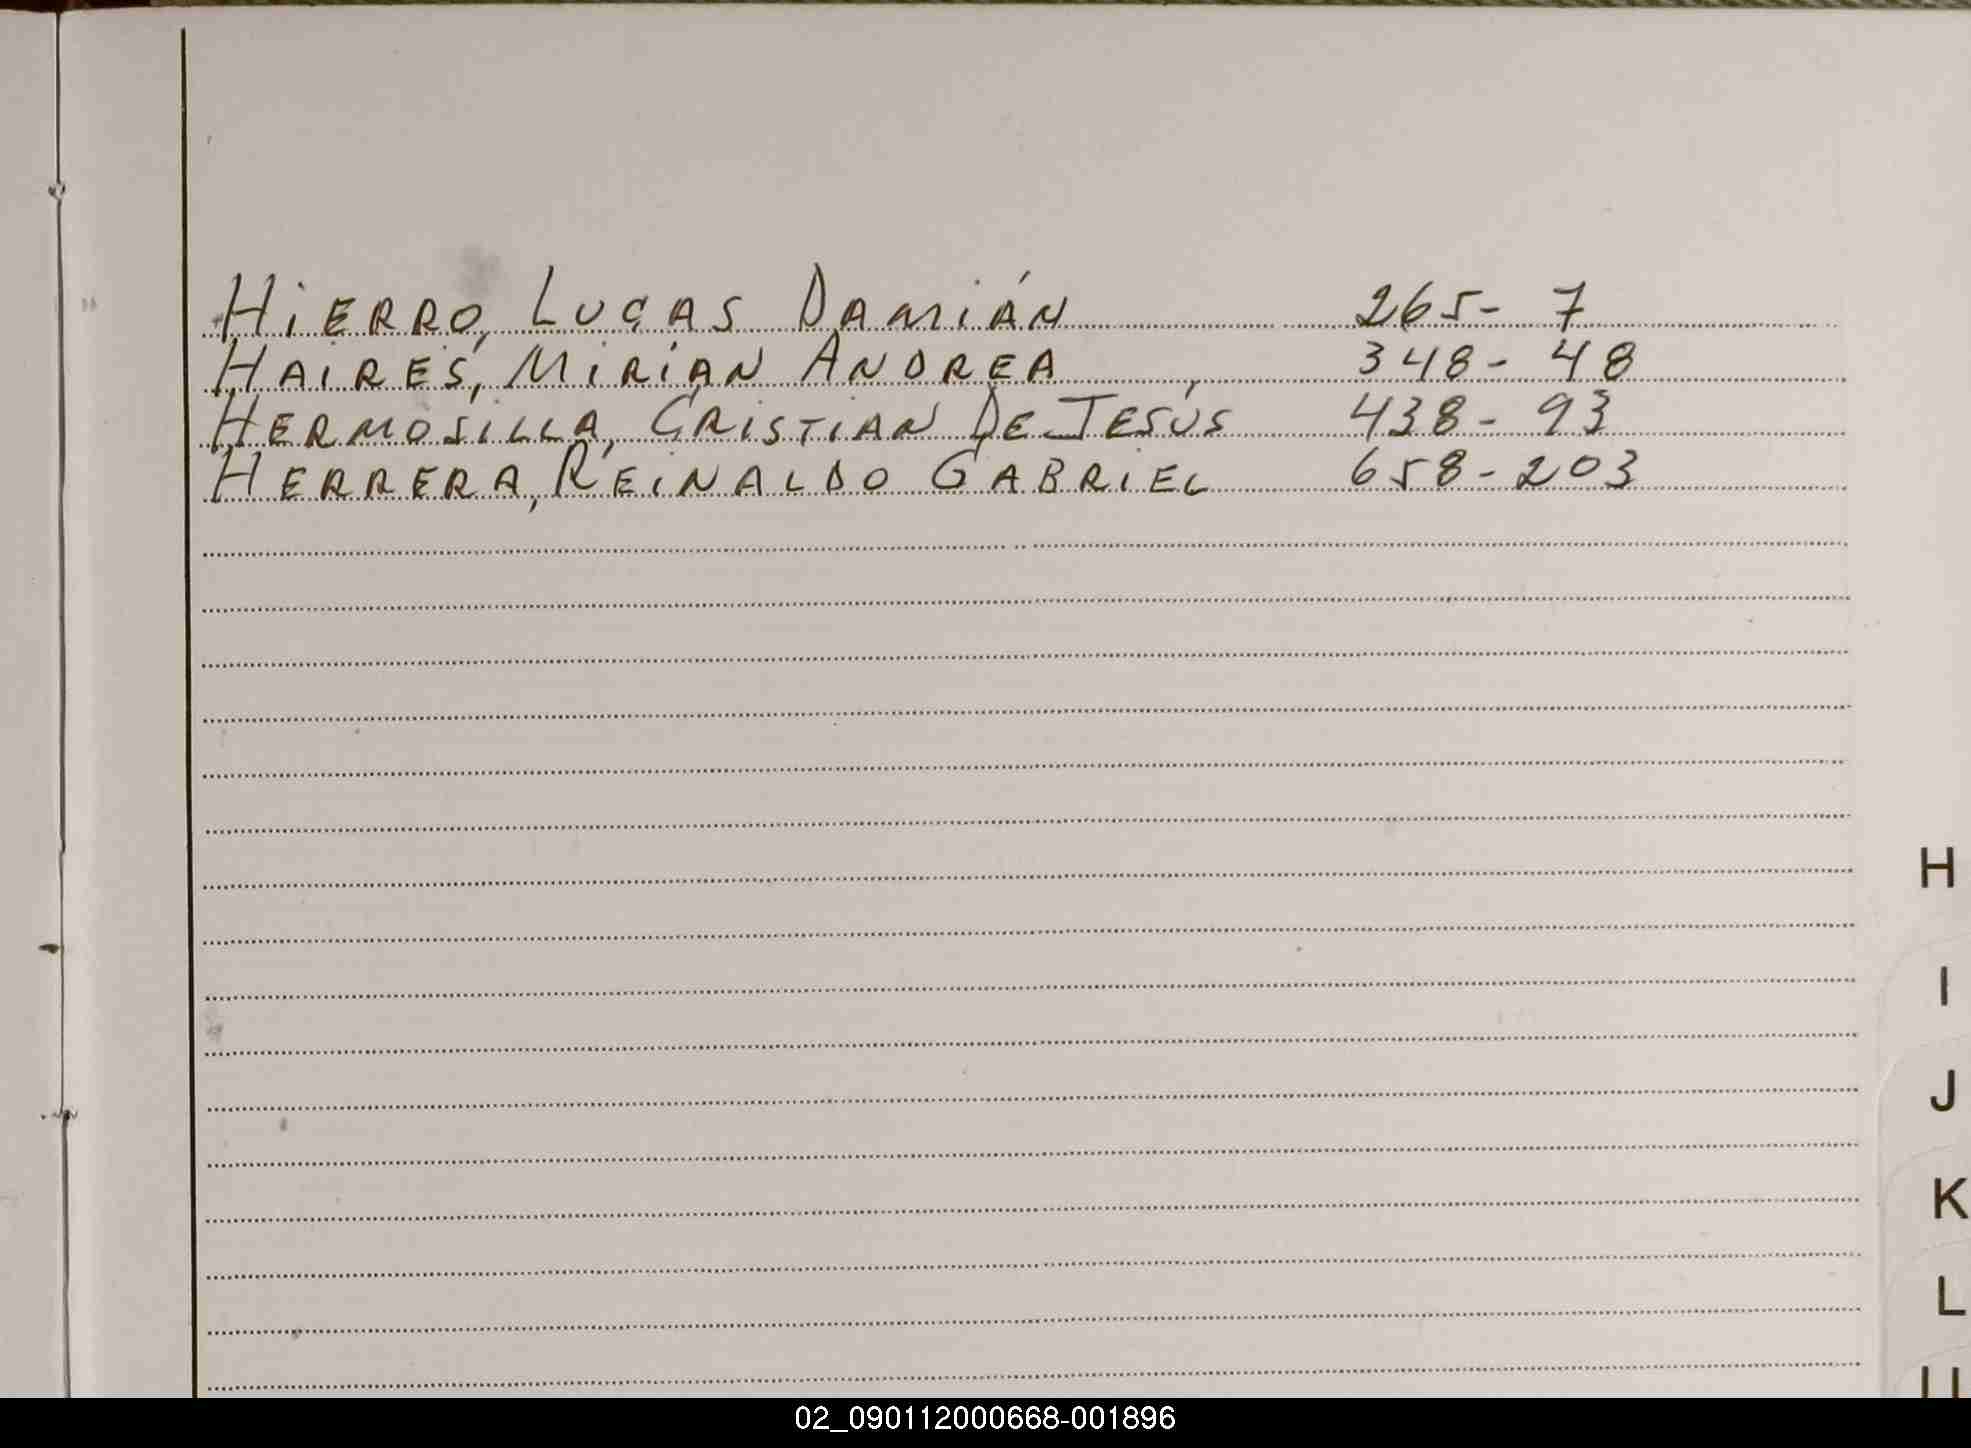 HIERRO, LUCAS DAMIÁN 265- 7
HAIRES, MIRIAN ANDREA 348- 48
HERMOSILLA, CRISTIAN DE JESÚS 438- 93
HERRERA, REINALDO GABRIEL 658-203
H
I
J
K
L
02_090112000668-001896